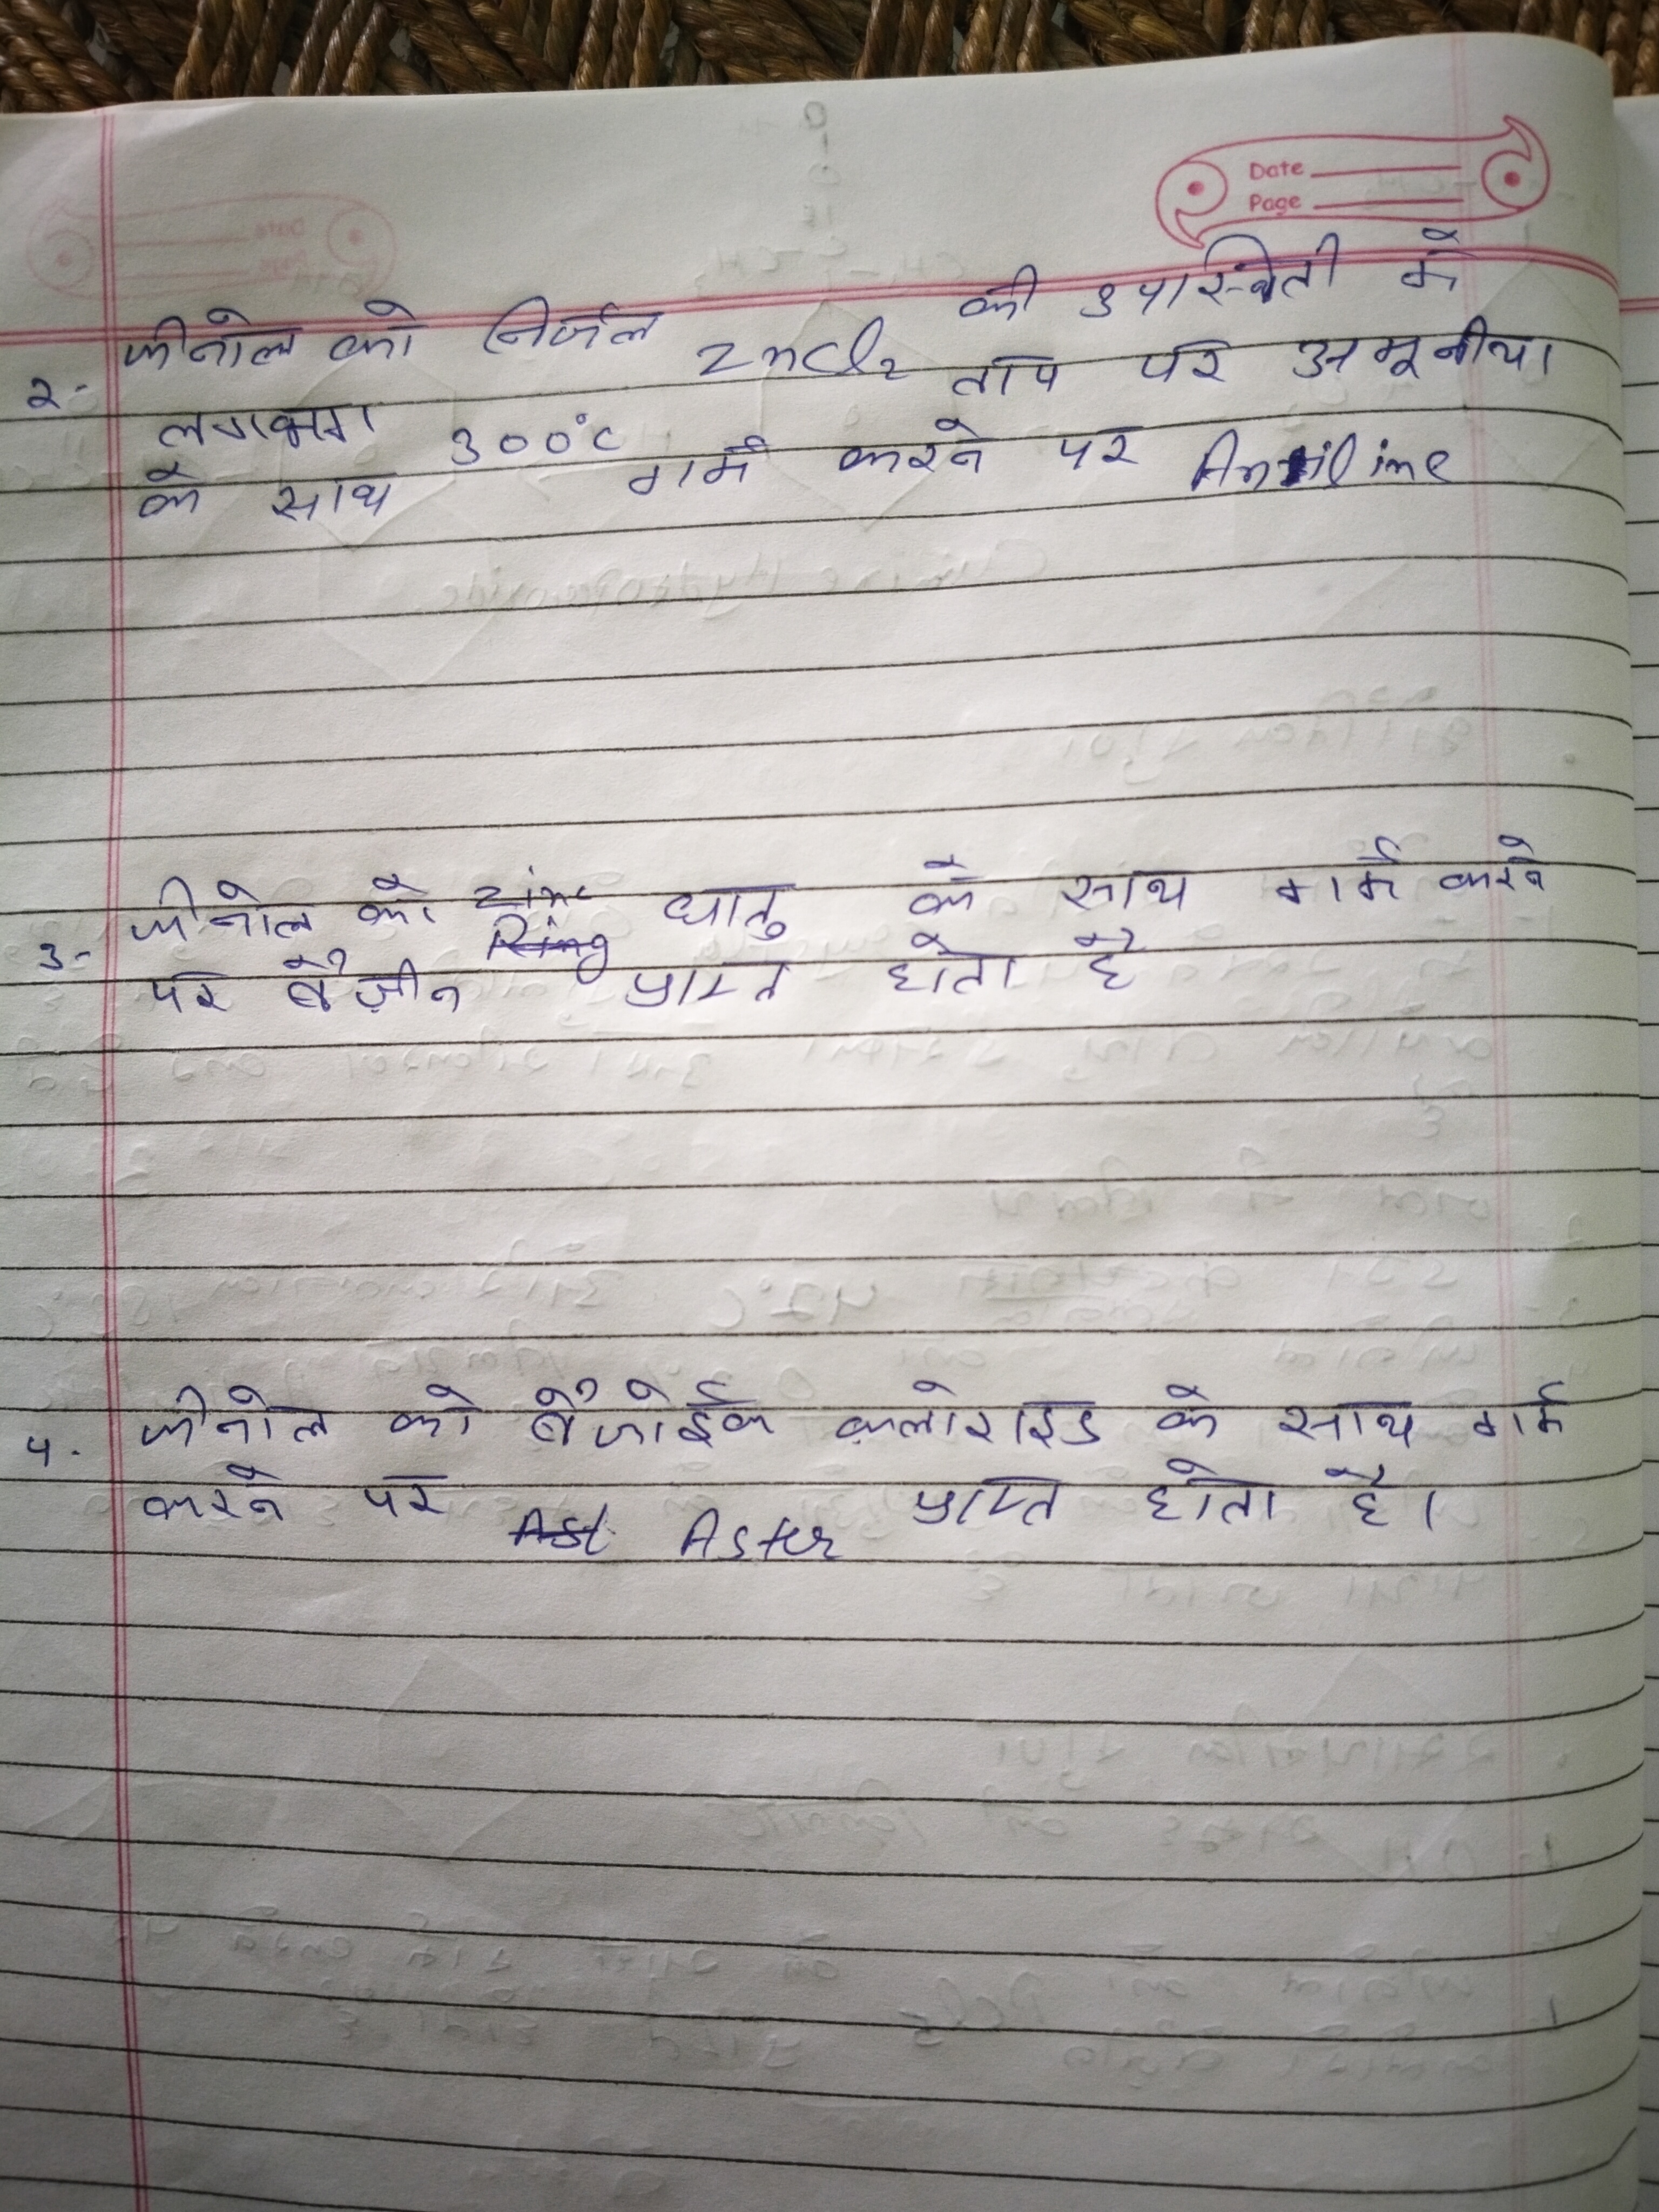 Date
Page
2- फीनोल को निर्जल ZnCl2 की उपस्थिती में
लगभग 300°C ताप पर अमूनीया
के साथ गर्म करने पर Aniline
3- फीनोल को zinc धातु के साथ गर्म करने
Ring
पर बेंजीन प्राप्त होता है
4. फीनोल को बेंजोईक क्लोराइड के साथ गर्म
करने पर Ast Aster प्राप्त होता है।